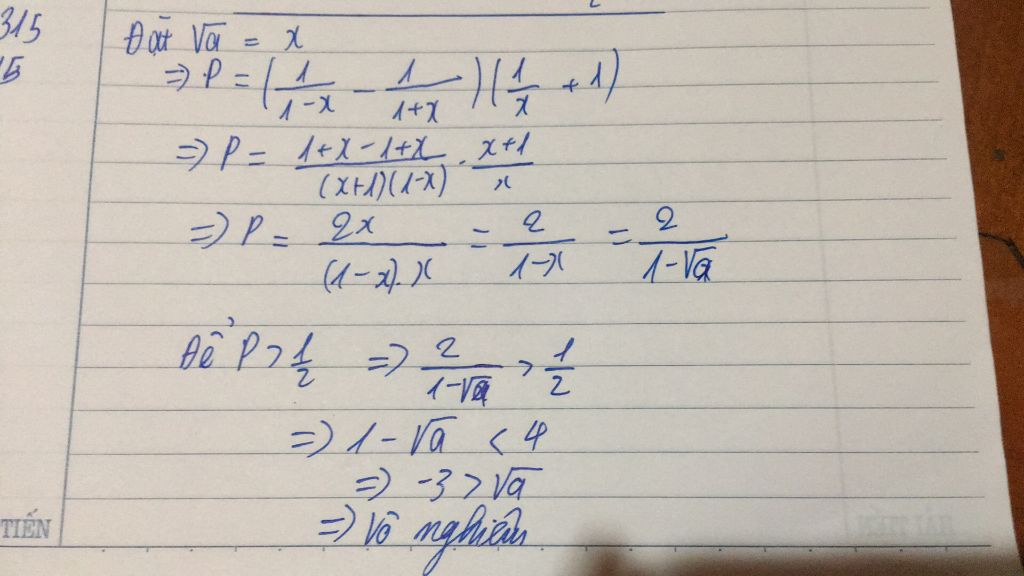 315
15
Đặt √a = x
=> P = (1/(1-x) - 1/(1+x)) (1/x + 1)
=> P = (1+x-1+x)/((x+1)(1-x)) . (x+1)/x
=> P = 2x/((1-x).x) = 2/(1-x) = 2/(1-√a)
Để P > 1/2 => 2/(1-√a) > 1/2
=> 1-√a < 4
=> -3 > √a
=> Vô nghiệm
TIẾN
HẢI TIẾN